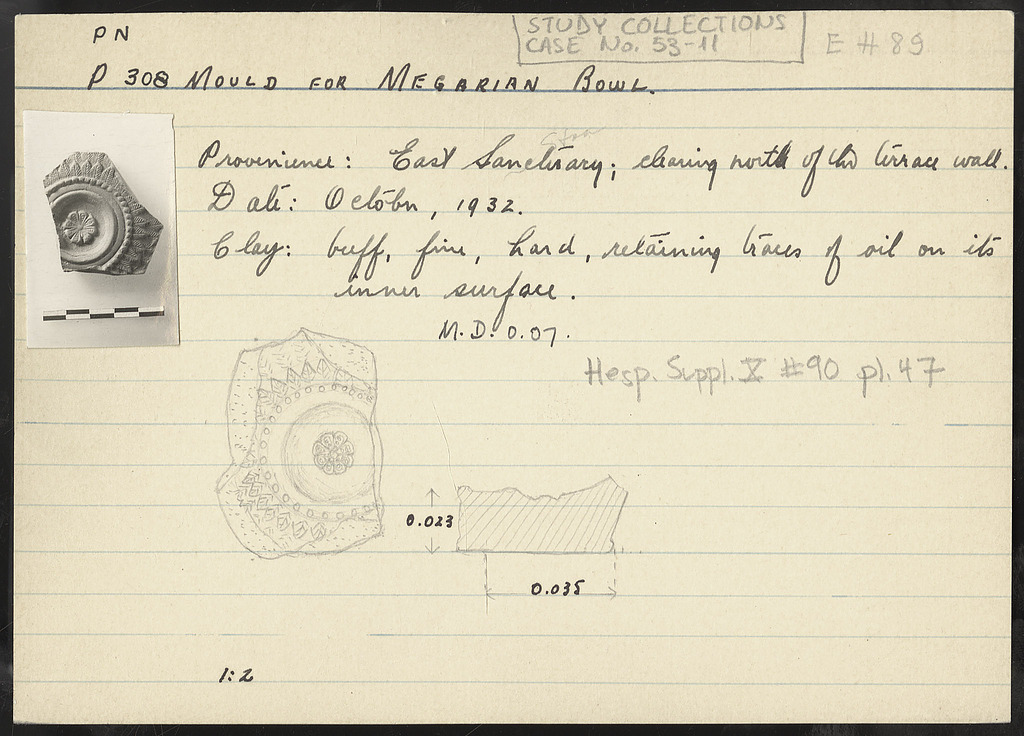 PN
STUDY COLLECTIONS
CASE No. 53-11
E # 89
P 308 MOULD FOR MEGARIAN BOWL.
Stoa
Provenience: East Sanctuary; clearing north of the terrace wall.
Date: October, 1932.
Clay: buff, fine, hard, retaining traces of oil on its
inner surface.
M.D. 0.07.
Hesp. Suppl. X #90 pl. 47
0.023
0.035
1:2